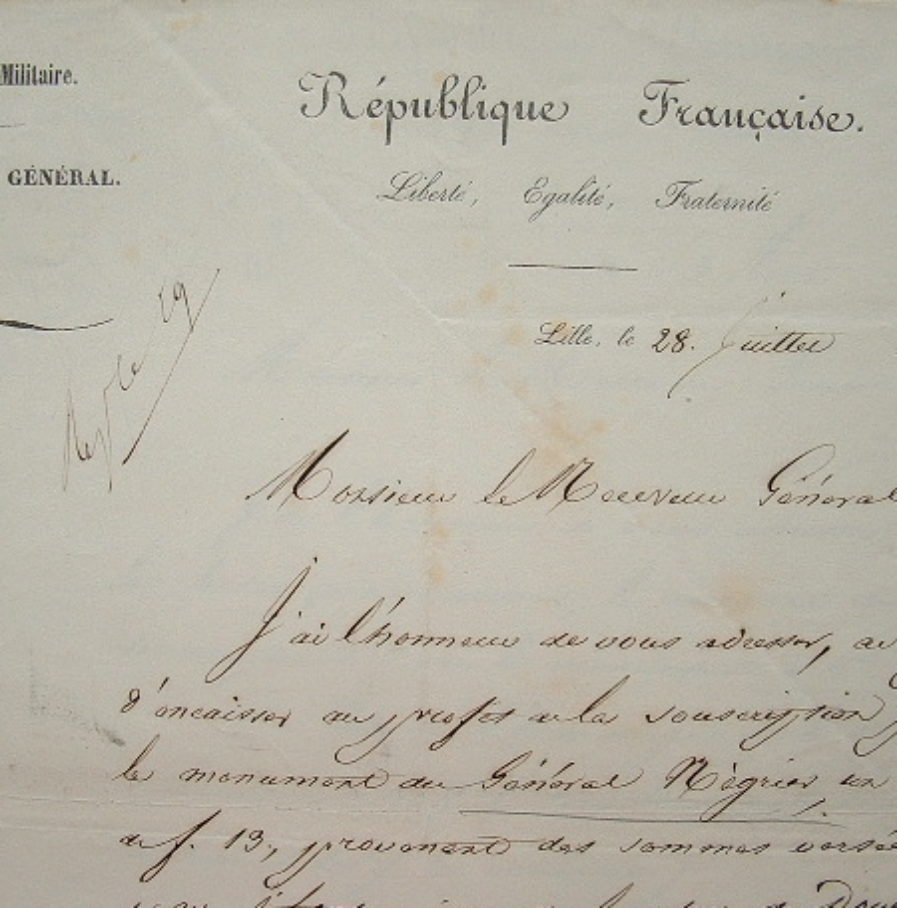 Militaire.
République Française.
GÉNÉRAL.
Liberté, Egalité, Fraternité
Lille, le 28. Juillet
Monsieur le Receveur Général
J'ai l'honneur de vous adresser, a
d'encaisser au profit de la souscription p
le monument du Général Négrier, un
de f. 13, provenant des sommes versée